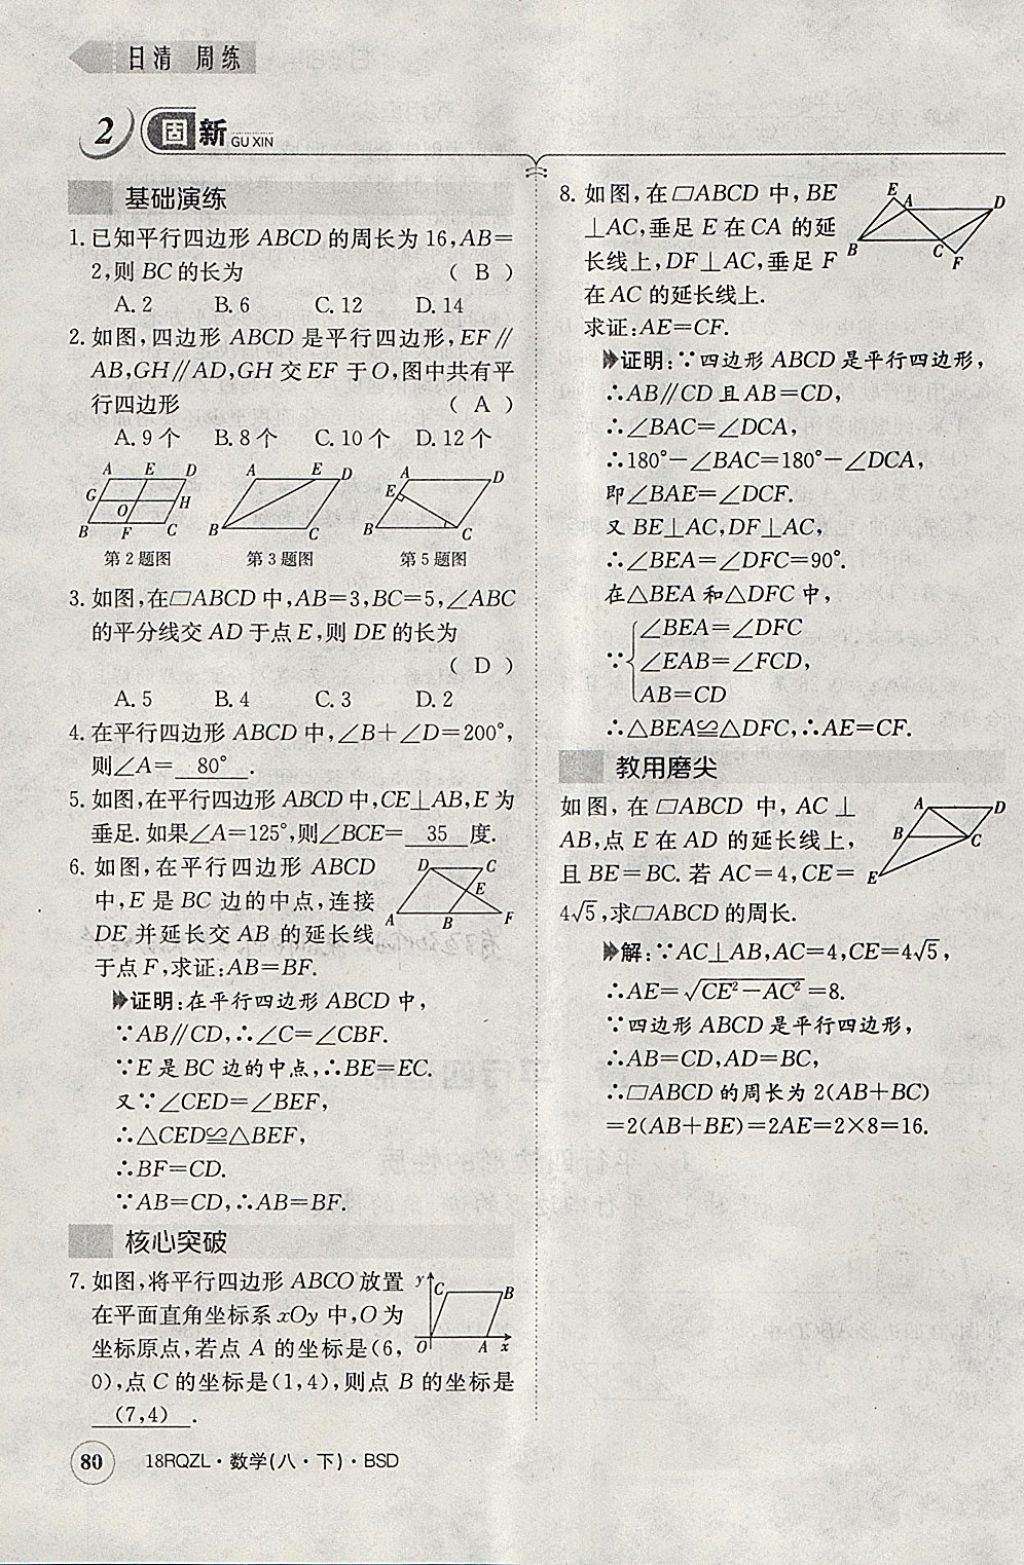 日清 周练
2 固新 GU XIN
基础演练
1. 已知平行四边形 ABCD 的周长为 16,AB=
2,则 BC 的长为 ( B )
A. 2 B. 6 C. 12 D. 14
2. 如图,四边形 ABCD 是平行四边形,EF∥
AB,GH∥AD,GH 交 EF 于 O,图中共有平
行四边形 ( A )
A. 9 个 B. 8 个 C. 10 个 D. 12 个
A E D
G O H
B F C
第 2 题图
A E D
B C
第 3 题图
A D
E
B C
第 5 题图
3. 如图,在▱ABCD 中,AB=3,BC=5,∠ABC
的平分线交 AD 于点 E,则 DE 的长为
( D )
A. 5 B. 4 C. 3 D. 2
4. 在平行四边形 ABCD 中,∠B+∠D=200°,
则∠A= 80° .
5. 如图,在平行四边形 ABCD 中,CE⊥AB,E 为
垂足. 如果∠A=125°,则∠BCE= 35 度.
6. 如图,在平行四边形 ABCD
中,E 是 BC 边的中点,连接
DE 并延长交 AB 的延长线
于点 F,求证:AB=BF.
D C
E
A B F
证明:在平行四边形 ABCD 中,
∵AB∥CD,∴∠C=∠CBF.
∵E 是 BC 边的中点,∴BE=EC.
又∵∠CED=∠BEF,
∴△CED≌△BEF,
∴BF=CD.
∵AB=CD,∴AB=BF.
核心突破
7. 如图,将平行四边形 ABCO 放置
在平面直角坐标系 xOy 中,O 为
坐标原点,若点 A 的坐标是(6,
0),点 C 的坐标是(1,4),则点 B 的坐标是
(7,4) .
y C B
O A x
80 18RQZL·数学(八·下)·BSD
8. 如图,在▱ABCD 中,BE
⊥AC,垂足 E 在 CA 的延
长线上,DF⊥AC,垂足 F
在 AC 的延长线上.
求证:AE=CF.
E A D
B C F
证明:∵四边形 ABCD 是平行四边形,
∴AB∥CD 且 AB=CD,
∴∠BAC=∠DCA,
∴180°-∠BAC=180°-∠DCA,
即∠BAE=∠DCF.
又 BE⊥AC,DF⊥AC,
∴∠BEA=∠DFC=90°.
在△BEA 和△DFC 中,
∠BEA=∠DFC
∵ ∠EAB=∠FCD,
AB=CD
∴△BEA≌△DFC,∴AE=CF.
教用磨尖
如图,在▱ABCD 中,AC⊥
AB,点 E 在 AD 的延长线上,
且 BE=BC. 若 AC=4,CE=
4√5,求▱ABCD 的周长.
A D
B C
E
解:∵AC⊥AB,AC=4,CE=4√5,
∴AE=√CE²-AC²=8.
∵四边形 ABCD 是平行四边形,
∴AB=CD,AD=BC,
∴▱ABCD 的周长为 2(AB+BC)
=2(AB+BE)=2AE=2×8=16.